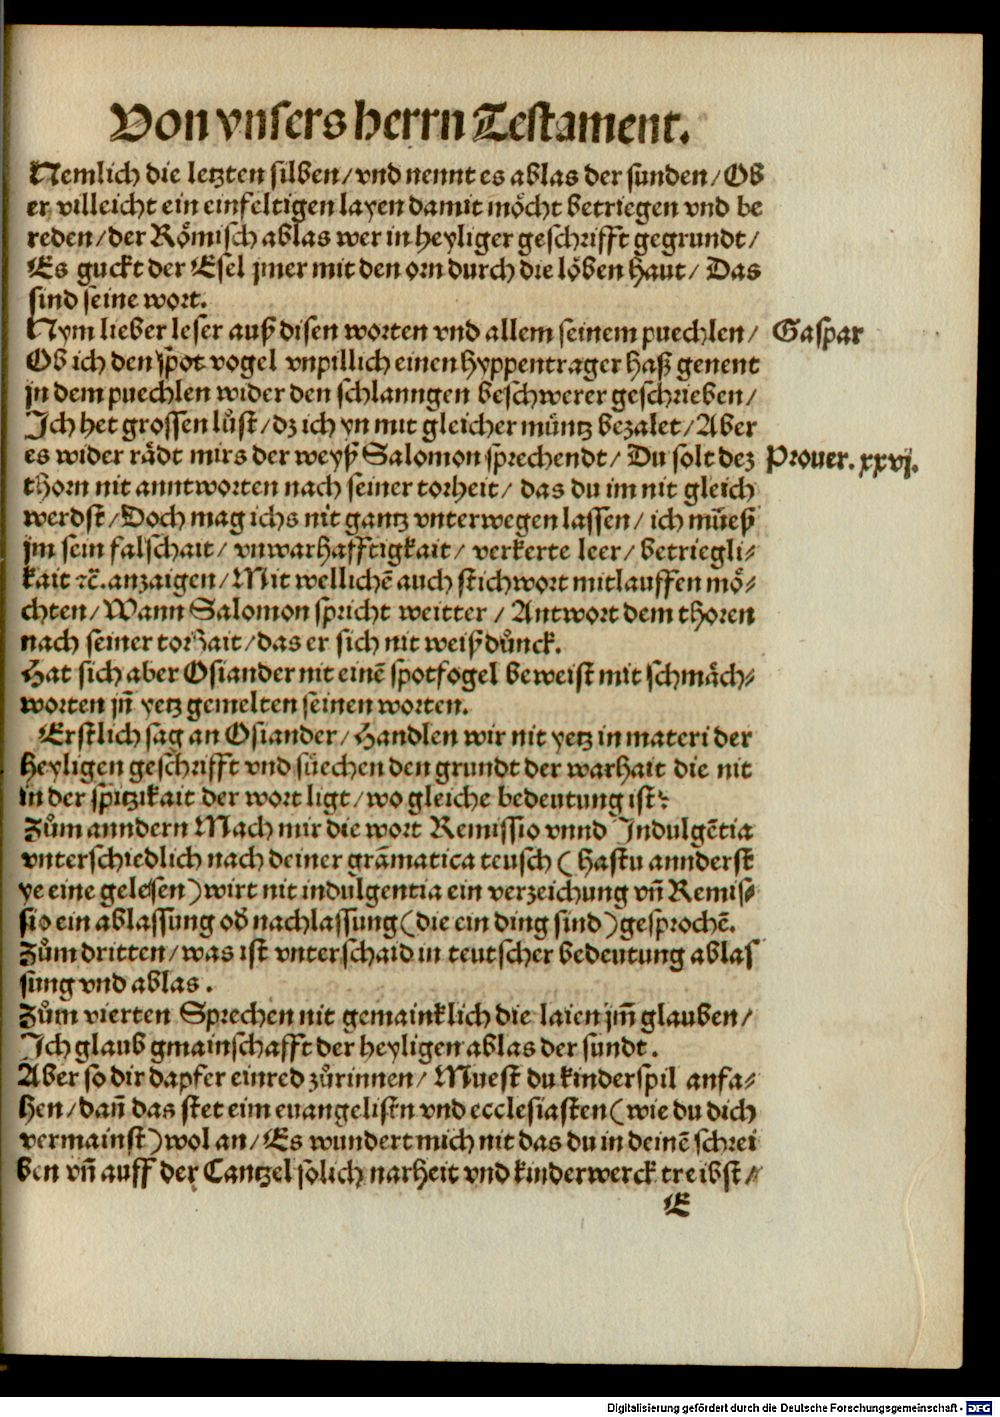 Von vnsers herrn Testament.
Nemlich die letzten silben/vnd nennt es ablas der sunden/Ob
er villeicht ein einfeltigen layen damit möcht betriegen vnd be
reden/der Römisch ablas wer in heyliger geschrifft gegrundt/
Es guckt der Esel jmer mit den orn durch die löben haut/ Das
sind seine wort.
Nym lieber leser auß disen worten vnd allem seinem puechlen/ Gaspar
Ob ich den spot vogel vnpillich einen hyppentrager haß genent
jn dem puechlen wider den schlanngen beschwerer geschrieben/
Ich het grossen lůst/dz ich yn mit gleicher müntz bezalet/Aber
es wider rädt mirs der weyß Salomon sprechendt/ Du solt dez Prouer. xxvj.
thorn nit anntworten nach seiner torheit/ das du im nit gleich
werdst/Doch mag ichs nit gantz vnterwegen lassen/ ich müeß
jm sein falschait/ vnwarhafftigkait/ verkerte leer/ betriegli⸗
kait ꝛc̃. anzaigen/Mit wellichẽ auch stichwort mitlauffen mö⸗
chten/Wann Salomon spricht weitter / Antwort dem thoren
nach seiner torhait/das er sich nit weiß důnck.
Hat sich aber Osiander nit einẽ spotfogel beweist mit schmäch⸗
worten jn̄ yetz gemelten seinen worten.
Erstlich sag an Osiander/Handlen wir nit yetz in materi der
heyligen geschrifft vnd süechen den grundt der warhait die nit
in der spitzikait der wort ligt/wo gleiche bedeutung ist?
Zům anndern Mach mir die wort Remissio vnnd Indulgẽtia
vnterschiedlich nach deiner grãmatica teusch (hastu annderst
ye eine gelesen)wirt nit indulgentia ein verzeichung vn̄ Remis⸗
sio ein ablassung oď nachlassung(die ein ding sind)gesprochẽ.
Zům dritten/was ist vnterschaid in teutscher bedeutung ablas
sung vnd ablas.
Zům vierten Sprechen nit gemainklich die laien jm̄ glauben/
Ich glaub gmainschafft der heyligen ablas der sundt.
Aber so dir dapfer einred zůrinnen/ Muest du kinderspil anfa⸗
hen/dan̄ das stet eim euangelistn vnd ecclesiasten(wie du dich
vermainst)wol an/Es wundert mich nit das du in deinẽ schrei
ben vn̄ auff der Cantzel solich narheit vnd kinderwerck treibst/
E
Digitalisierung gefördert durch die Deutsche Forschungsgemeinschaft - DFG